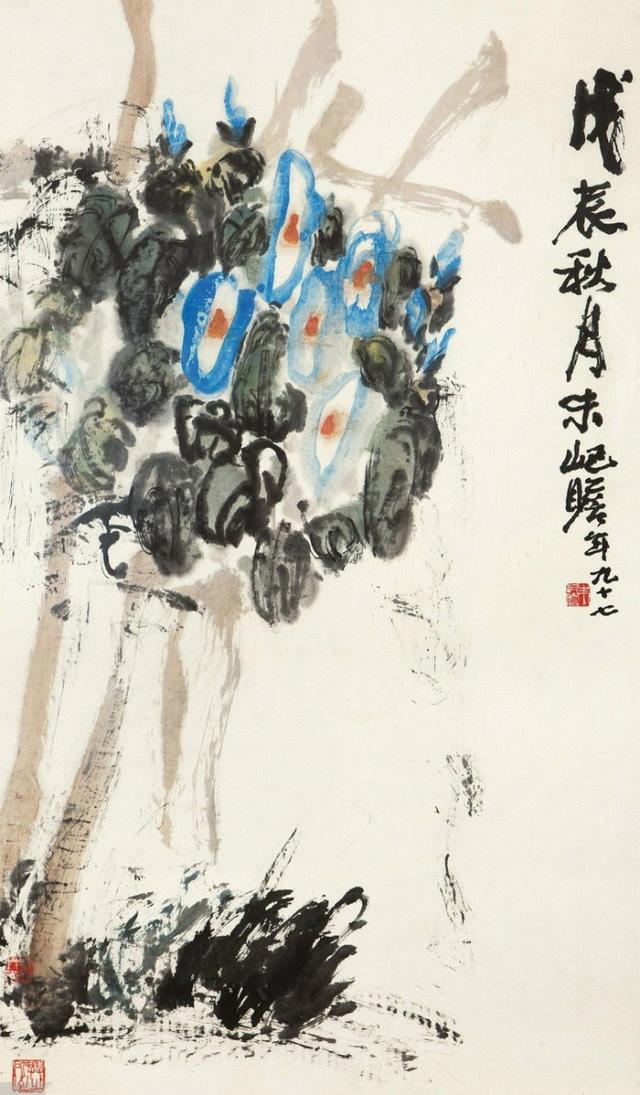 戊辰秋月朱屺瞻年九十七